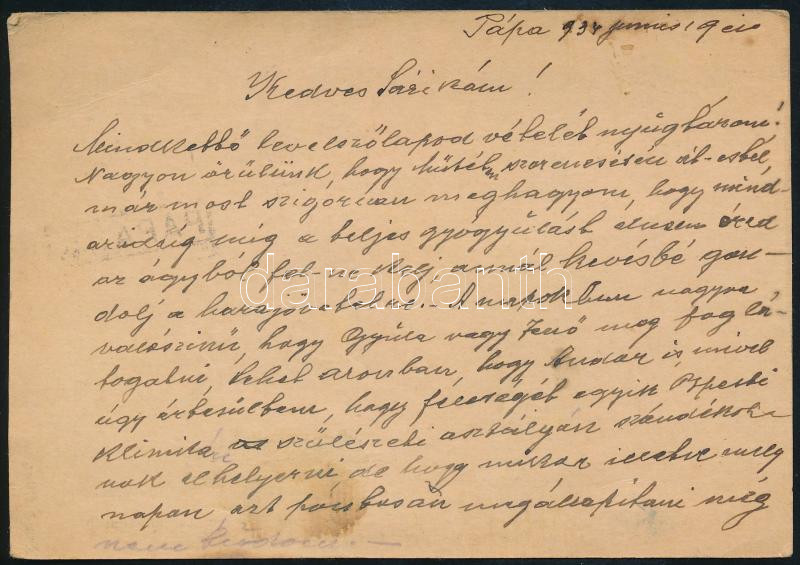 Pápa 934 junius 19 én
Kedves Sárikám!
Mindkettő levelezőlapod vételét nyugtázom!
Nagyon örülünk, hogy műtéten szerencsésen át-estél,
már most szigorúan meghagyom, hogy mind-
addig míg a teljes gyógyulást el nem éred
az ágyból fel ne állj, annál kevésbé gon-
dolj a hazajövetelre. A napokban nagyon
valószinű, hogy Gyula vagy Jenő meg fog lá-
togatni, lehet azonban, hogy Andor is, mivel
úgy értesültem, hogy feleségét egyik Bpesti
klinikán szülészeti osztályán szándékoz-
nak elhelyezni, de hogy mikor illetve mely
napon azt pontosan megállapitani még
nem tudom.—
darabanth